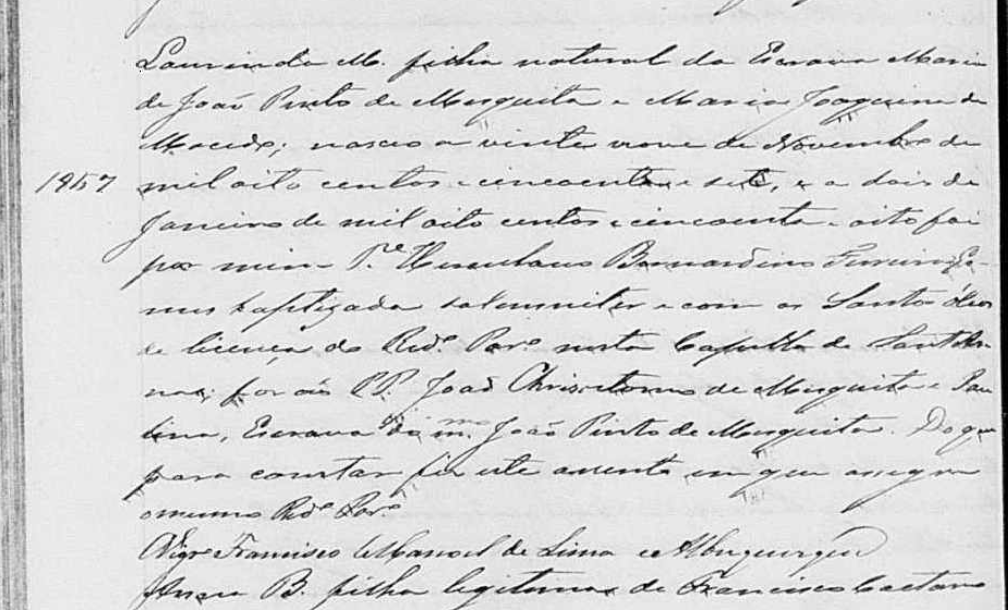 Laurinda M. filha natural da Escrava Maria
de João Pinto de Mesquita e Maria Joaquina de
Macedo; nasceo a vinte nove de Novembro de
1857 mil oito centos e cincoenta e sete, e a dois de
Janeiro de mil oito centos e cincoenta e oito foi
por mim P.e Herculano Bernardino Ferreira
baptizada solemniter e com os Santos óleos
de licença do Rdº Parº nesta Capella de Sant An
na; forão PP. João Chrisostomo de Mesquita e Pau
lina, Escrava do mmo. João Pinto de Mesquita. Do q
para constar fiz este assento em que assigna
o mesmo Rdº Parº
Vigrº Francisco Manoel de Lima e Albuquerque
B. filha legitima de Francisco Caetano